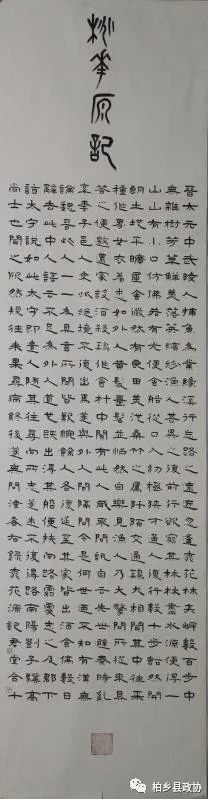 桃華原記
晉太元中武陵人捕魚為業緣溪行忘路之遠近忽逢桃花林夾岸數百步中
無雜樹芳草鮮美落英繽紛漁人甚異之復前行欲窮其林林盡水源便得一
山山有小口仿佛若有光便舍船從口入初極狹才通人復行數十步豁然開
朗土地平曠屋舍儼然有良田美池桑竹之屬阡陌交通雞犬相聞其中往來
種作男女衣著悉如外人黃髮垂髫並怡然自樂見漁人乃大驚問所從來具
答之便要還家設酒殺雞作食村中聞有此人咸來問訊自云先世避秦時亂
率妻子邑人來此絕境不復出焉遂與外人間隔問今是何世乃不知有漢無
論魏晉此人一一為具言所聞皆歎惋餘人各復延至其家皆出酒食停數日
辭去此中人語云不足為外人道也既出得其船便扶向路處處志之及郡下
詣太守說如此太守即遣人隨其往尋向所志遂迷不復得路南陽劉子驥高
尚士也聞之欣然規往未果尋病終後遂無問津者右錄桃花源記君堂合十
柏乡县政协